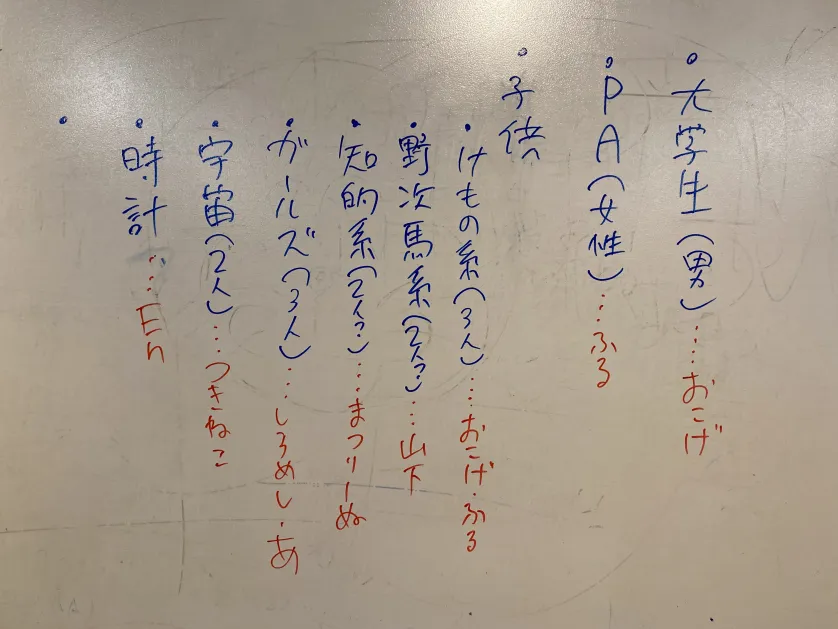 ・大学生(男)…おこげ
・PA(女性)…ふる
・子供
・けもの系(3人)…おこげ・ふる
・野次馬系(2人?)…山下
・知的系(2人?)…まつりーぬ
・ガールズ(3人)…しろめし・あ
・宇宙(2人)…つきねこ
・時計…En
・